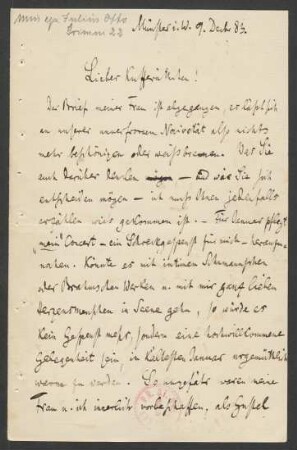 Mus. ep. Julius Otto
Grimm 22
Münster i. W. 9. Decbr 83.
Lieber Kufferäthchen!
Der Brief meiner Frau ist abgegangen, es läßt sich
an unserer unverfrornen Naivetät also nichts
mehr beschönigen oder weißbrennen. Was Sie
auch darüber denken – und wie Sie sich
entscheiden mögen – ich muß Ihnen jedenfalls
erzählen wie's gekommen ist. – Im Januar pflegt
"mein" Concert – ein Schreckgespenst für mich – heranzu-
nahen. Könnte es mit intimen Schumannschen
oder Brahmsschen Werken u. mit mir ganz lieben
Herzensmenschen in Scene gehn, so würde es
kein Gespenst mehr, sondern eine hochwillkommene
Gelegenheit sein, im kältesten Januar urgemüthlich
warm zu werden. So ungefähr waren meine
Frau u. ich innerlich